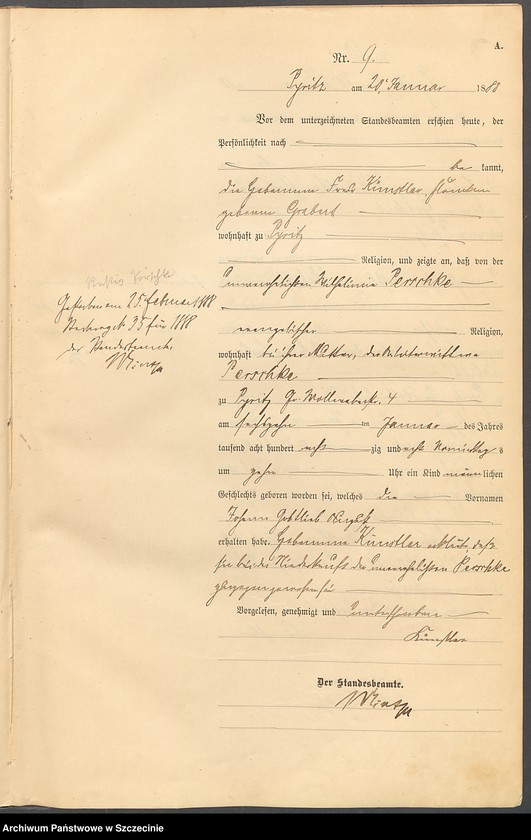 A.
Nr. 9.
Pyritz am 20. Januar 1888
Vor dem unterzeichneten Standesbeamten erschien heute, der
Persönlichkeit nach
be kannt,
die Hebamme Frau Künstler,
geborene Grabert
wohnhaft zu Pyritz
Religion, und zeigte an, daß von der
unverehelichten Wilhelmine Perschke
evangelischer Religion,
wohnhaft bei ihrer Mutter, der
Perschke
zu Pyritz Gr. Wollweberstr. 4
am sechszehnten Januar des Jahres
tausend acht hundert acht zig und acht Vormittags
um zehn Uhr ein Kind männlichen
Geschlechts geboren worden sei, welches die Vornamen
Johann Gottlieb August
erhalten habe. Hebamme Künstler erklärte, daß
sie bei der Niederkunft der unverehelichten Perschke
zugegen gewesen sei
Vorgelesen, genehmigt und unterschrieben
Künstler
Der Standesbeamte.
Gestorben am 25 Februar 1888
Sterbereg. № 35 für 1888
der Standesbeamte.
Archiwum Państwowe w Szczecinie